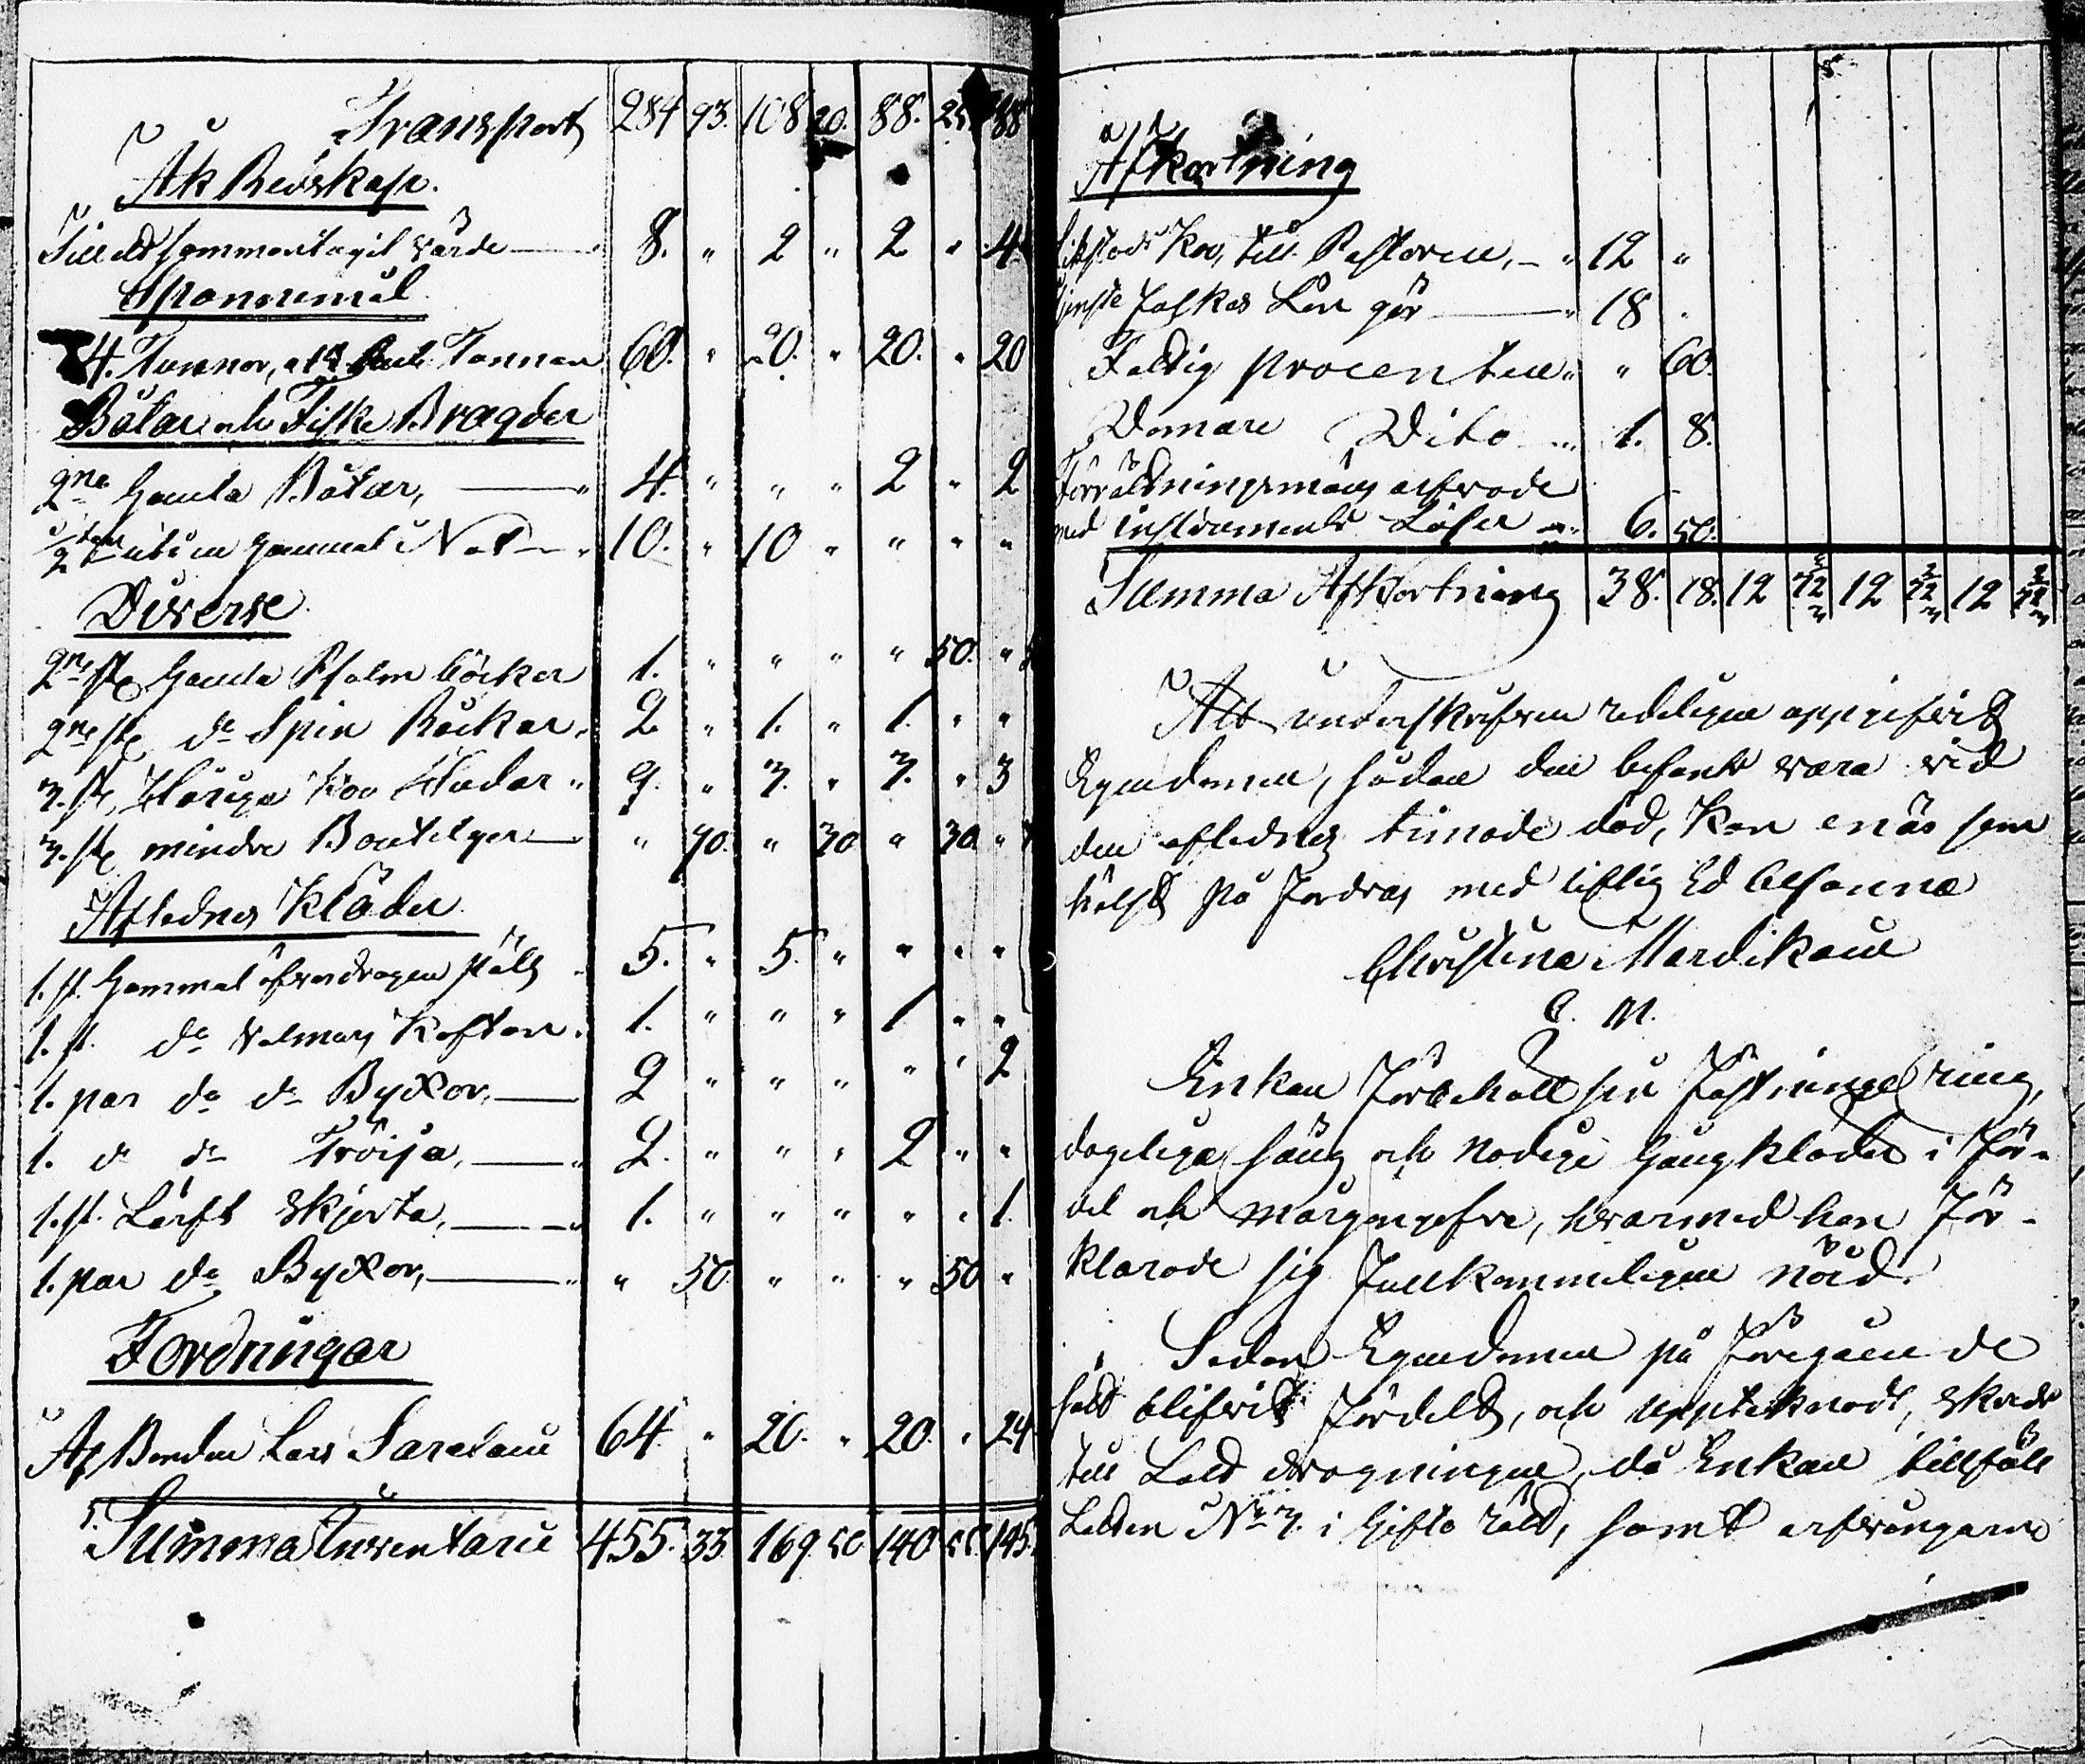 Transport 284 93. 108 20. 88. 25 88
Åk Redskap.
Till ett sammantagit värde 8. " 2 " 2 " 4
Spannemål
4. Tunnor, Tunnan 60. " 20. " 20. " 20
Båtar och Fiske Bragder
2ne Gamla Båtar, 4. " " " 2 " 2
gammal Not 10. " 10 " " " "
Diverse
2ne st. Gamla Psalm böcker 1. " " " " 50. "
2ne st. do Spin Råckar 2 " 1. " 1. " "
3. st. Håriga Koo Hudar 9. " 3. " 3. " 3
3. st. mindre Bouteljer " 90. " 30 " 30 "
Aflednes Kläder
1. st. Gammal öfverdragen päls 5. " 5. " " " "
1. st. do Valmars Kaftan 1. " " " 1 " "
1. par do do Byxor, 2 " " " " " 2
1. do do Tröija, 2. " " " 2 " "
1. st. Lärfts Skjorta, 1. " " " " " 1.
1. par do Byxor, " 50. " " " 50 "
Fordringar
Af Bonden Lars 64 " 20. " 20. " 24
Summa Inventarii 455. 33 169. 50 140 145.
Afkortning
Koo, till Pastoren, 12 "
folkes Lön gör 18 "
Fattig procenten " 60.
Domare Dito 1. 8.
arfvode
med instruments Lösen 6. 50.
Summa Afkortning 38. 18. 12 12 12
Att underskrifven redeligen uppgifvit
Egendomen, sådan den befants vara vid
den aflednes timade död, kan enär som
hälst på fordras med liflig Ed besanna
Christina Mardikain
C. M.
Enkan Förbehöll sin Fästninge ring,
dageliga säng och nödige Gångkläder i För-
del och morgongofva, hvarmed hon För-
klarade sig Fullkommeligen nöid.
Sedan Egendomen på Föregående
sätt blifvit Fördelt, och upptecknadt, skreds
till Lått dragningen, då Enkan tillföll
Låtten No 3. i Gifto rätt, samt arfvingarne